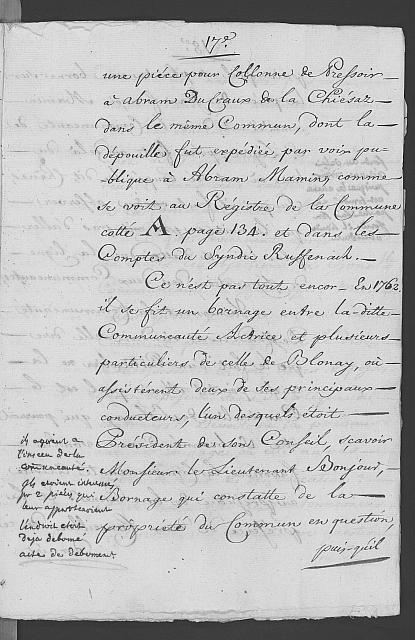 17e.
une piéce pour Collonne de Pressoir
à abram DuCraux de la Chiésaz
dans le même Commun, dont la
dépouille fut expédiée par voix pu-
blique à Abram Mamin, comme
se voit au Registre de la Commune
cotté A. page 134. et dans les
Comptes du Syndic Ruffenach.
Ce n'est pas tout encor. En 1762.
il se fit un bornage entre la ditte
Communeauté Actrice et plusieurs
particuliers de celle de Blonay, où
assistèrent deux de ses principaux
conducteurs, l'un desquels étoit
Président de son Conseil, sçavoir
Monsieur le Lieutenant Bonjour,
Bornage qui constatte de la
propriété du Commun en question,
puis-qu'il
il agirent a
l'inseu de la
communauté.
ils etoient
pr 2 pièces qui
leur apportenoient
l'endroit etoit
deja deborné
acte de debornement